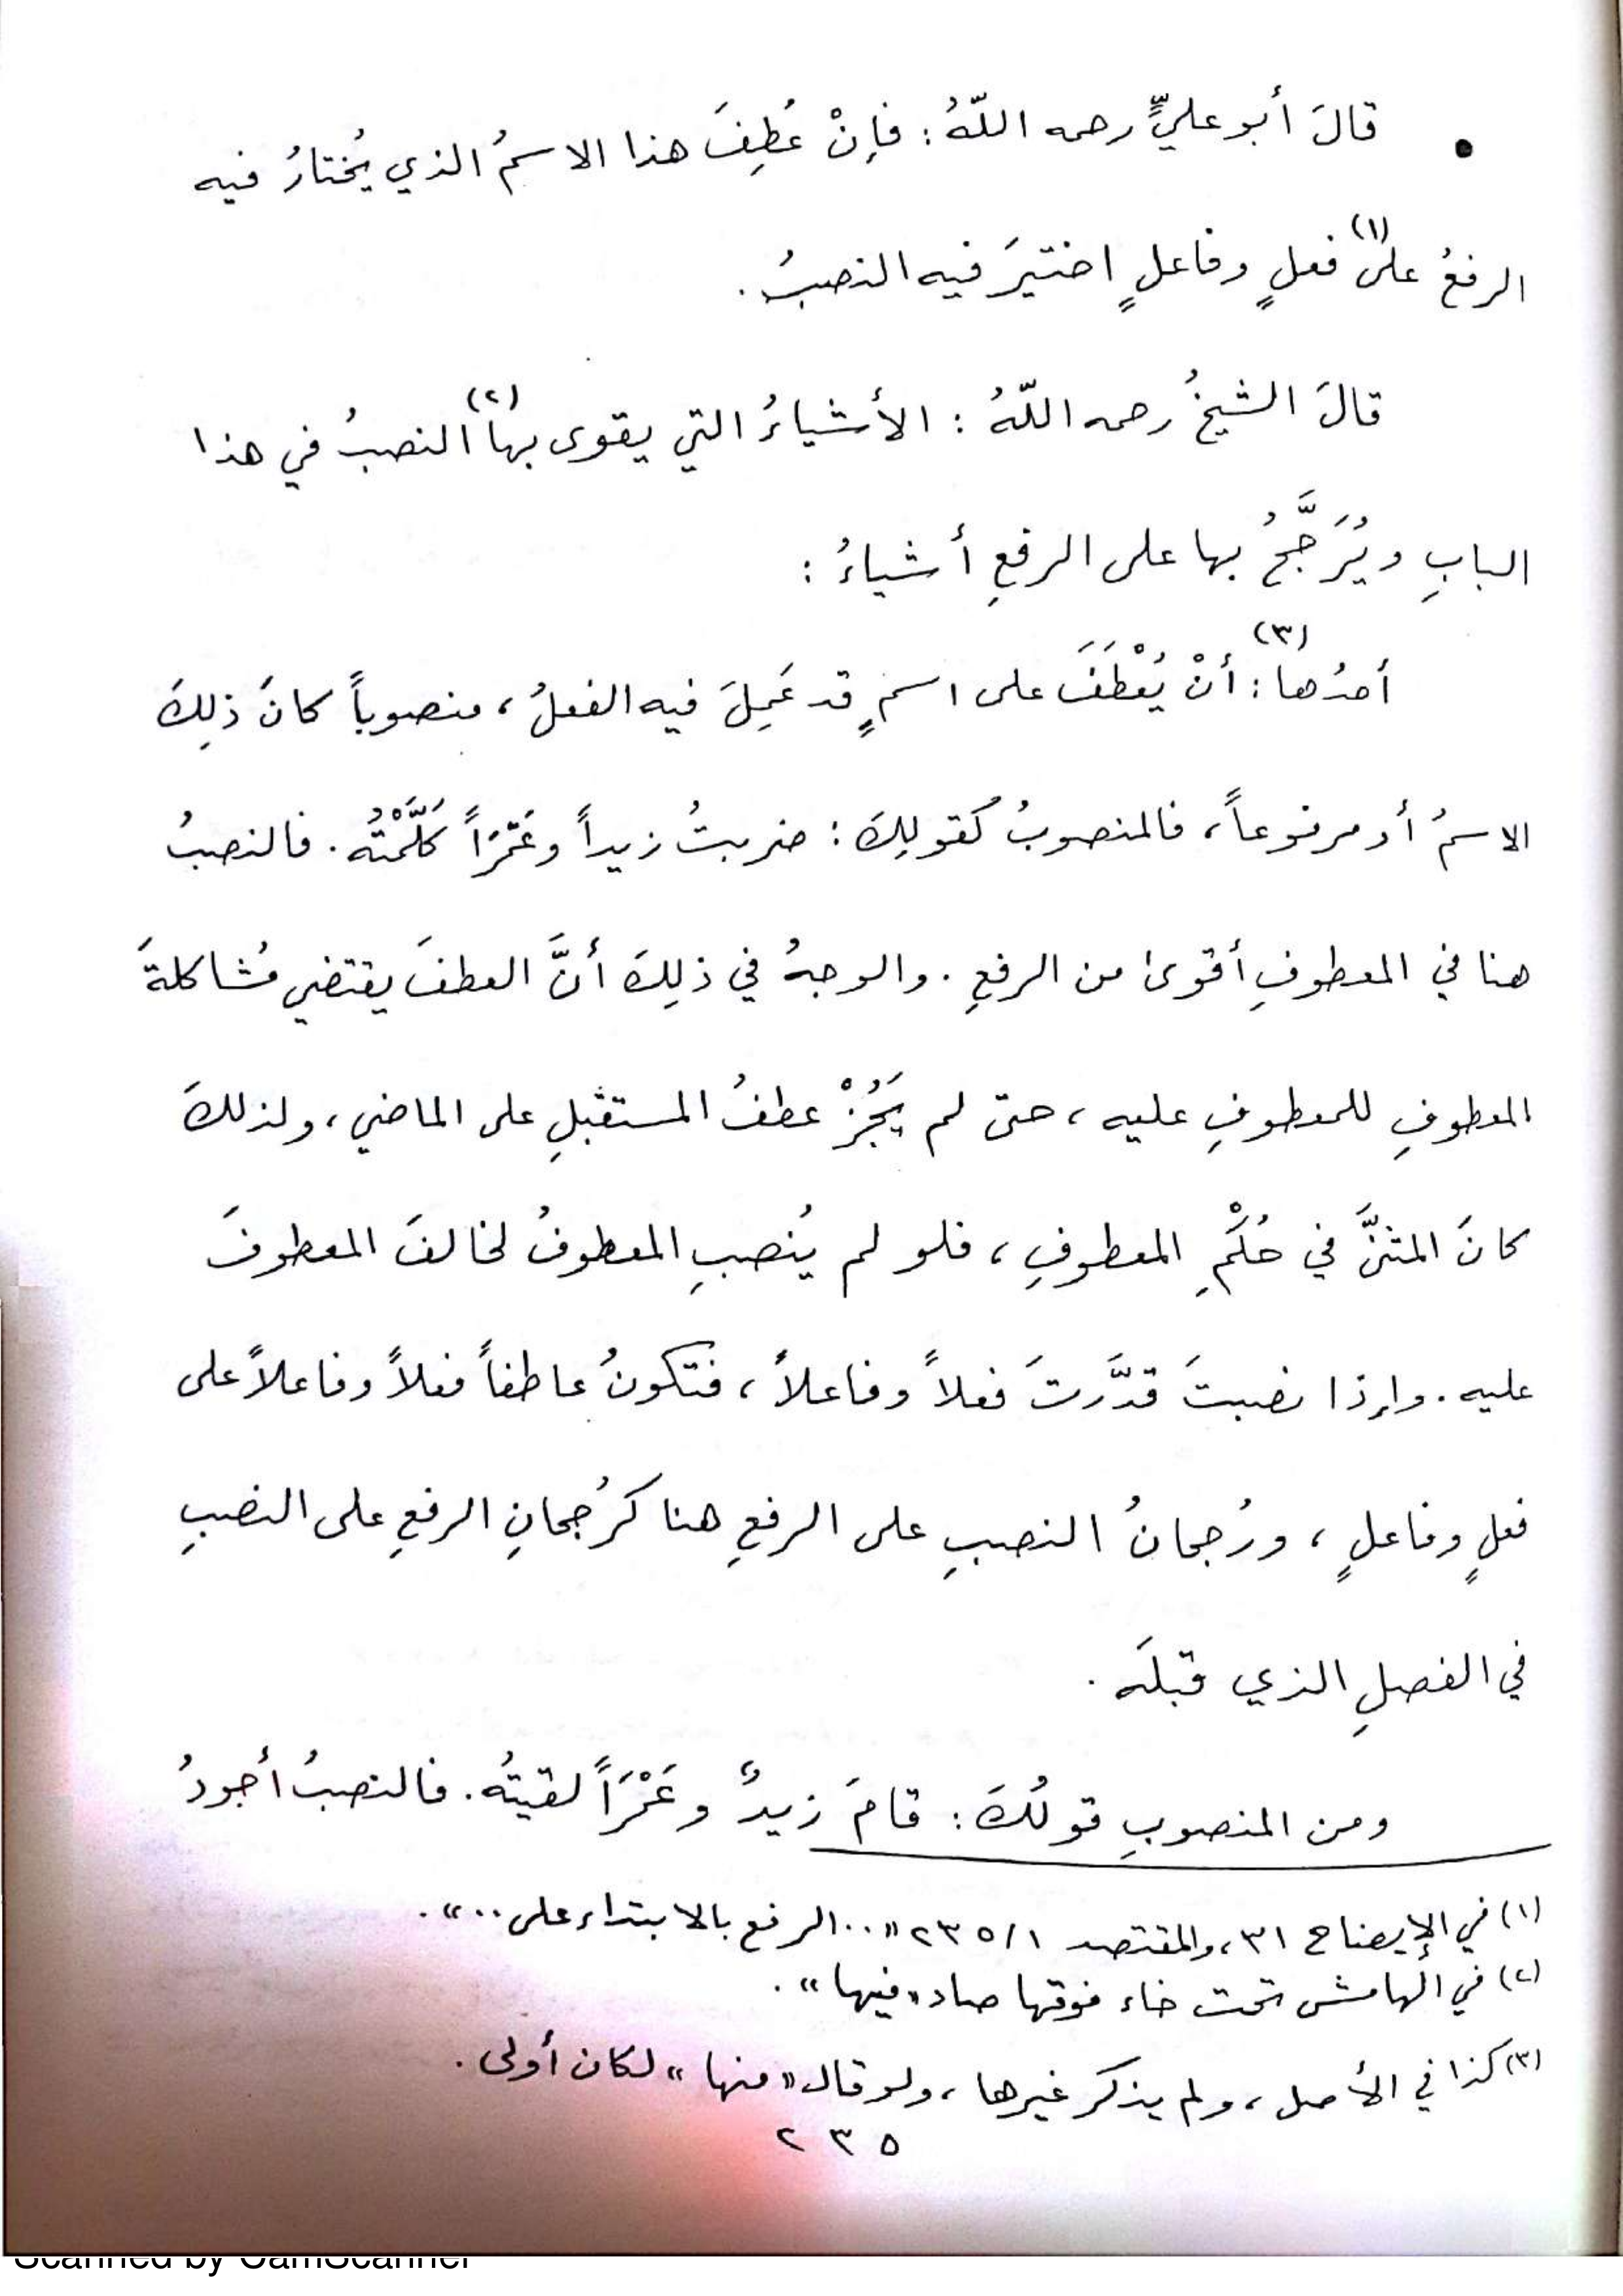 • قالَ أبو عليٍّ رحمه اللّهُ: فإنْ عُطِفَ هذا الاسمُ الذي يُختارُ فيه
الرفعُ على(١) فعلٍ وفاعلٍ اختيرَ فيه النصبُ.
قالَ الشيخُ رحمه اللّهُ: الأشياءُ التي يقوى بها(٢) النصبُ في هذا
البابِ ويُرَجَّحُ بها على الرفعِ أشياءُ:
أحدُها(٣): أنْ يُعْطَفَ على اسمٍ قد عَمِلَ فيه الفعلُ، منصوباً كانَ ذلِكَ
الاسمُ أو مرفوعاً، فالمنصوبُ كقولِكَ: ضربتُ زيداً وعَمْرَاً كَلَّمْتُه. فالنصبُ
هنا في المعطوفِ أقوىٰ من الرفعِ. والوجهُ في ذلِكَ أنَّ العطفَ يقتضي مُشاكلةَ
المعطوفِ للمعطوفِ عليه، حتى لم يَجُزْ عطفُ المستقبلِ على الماضي، ولذلكَ
كانَ المثنَّى في حُكْمِ المعطوفِ، فلو لم يُنصبِ المعطوفُ لخالفَ المعطوفَ
عليه. وإذا نصبتَ قدَّرتَ فعلاً وفاعلاً، فتكونُ عاطفاً فعلاً وفاعلاً على
فعلٍ وفاعلٍ، ورُجحانُ النصبِ على الرفعِ هنا كرُجحانِ الرفعِ على النصبِ
في الفصلِ الذي قبلَه.
ومن المنصوبِ قولُكَ: قامَ زيدٌ وعَمْرَاً لقيتُه. فالنصبُ أجودُ
(١) في الإيضاح ٣١، والمقتصد ٢٣٥/١ «..الرفع بالابتداء على..».
(٢) في الهامش تحت خاء فوقها صاد «فيها».
(٣) كذا في الأصل، ولم يذكر غيرها، ولو قال «منها» لكان أولى.
٢٣٥
Scanned by CamScanner